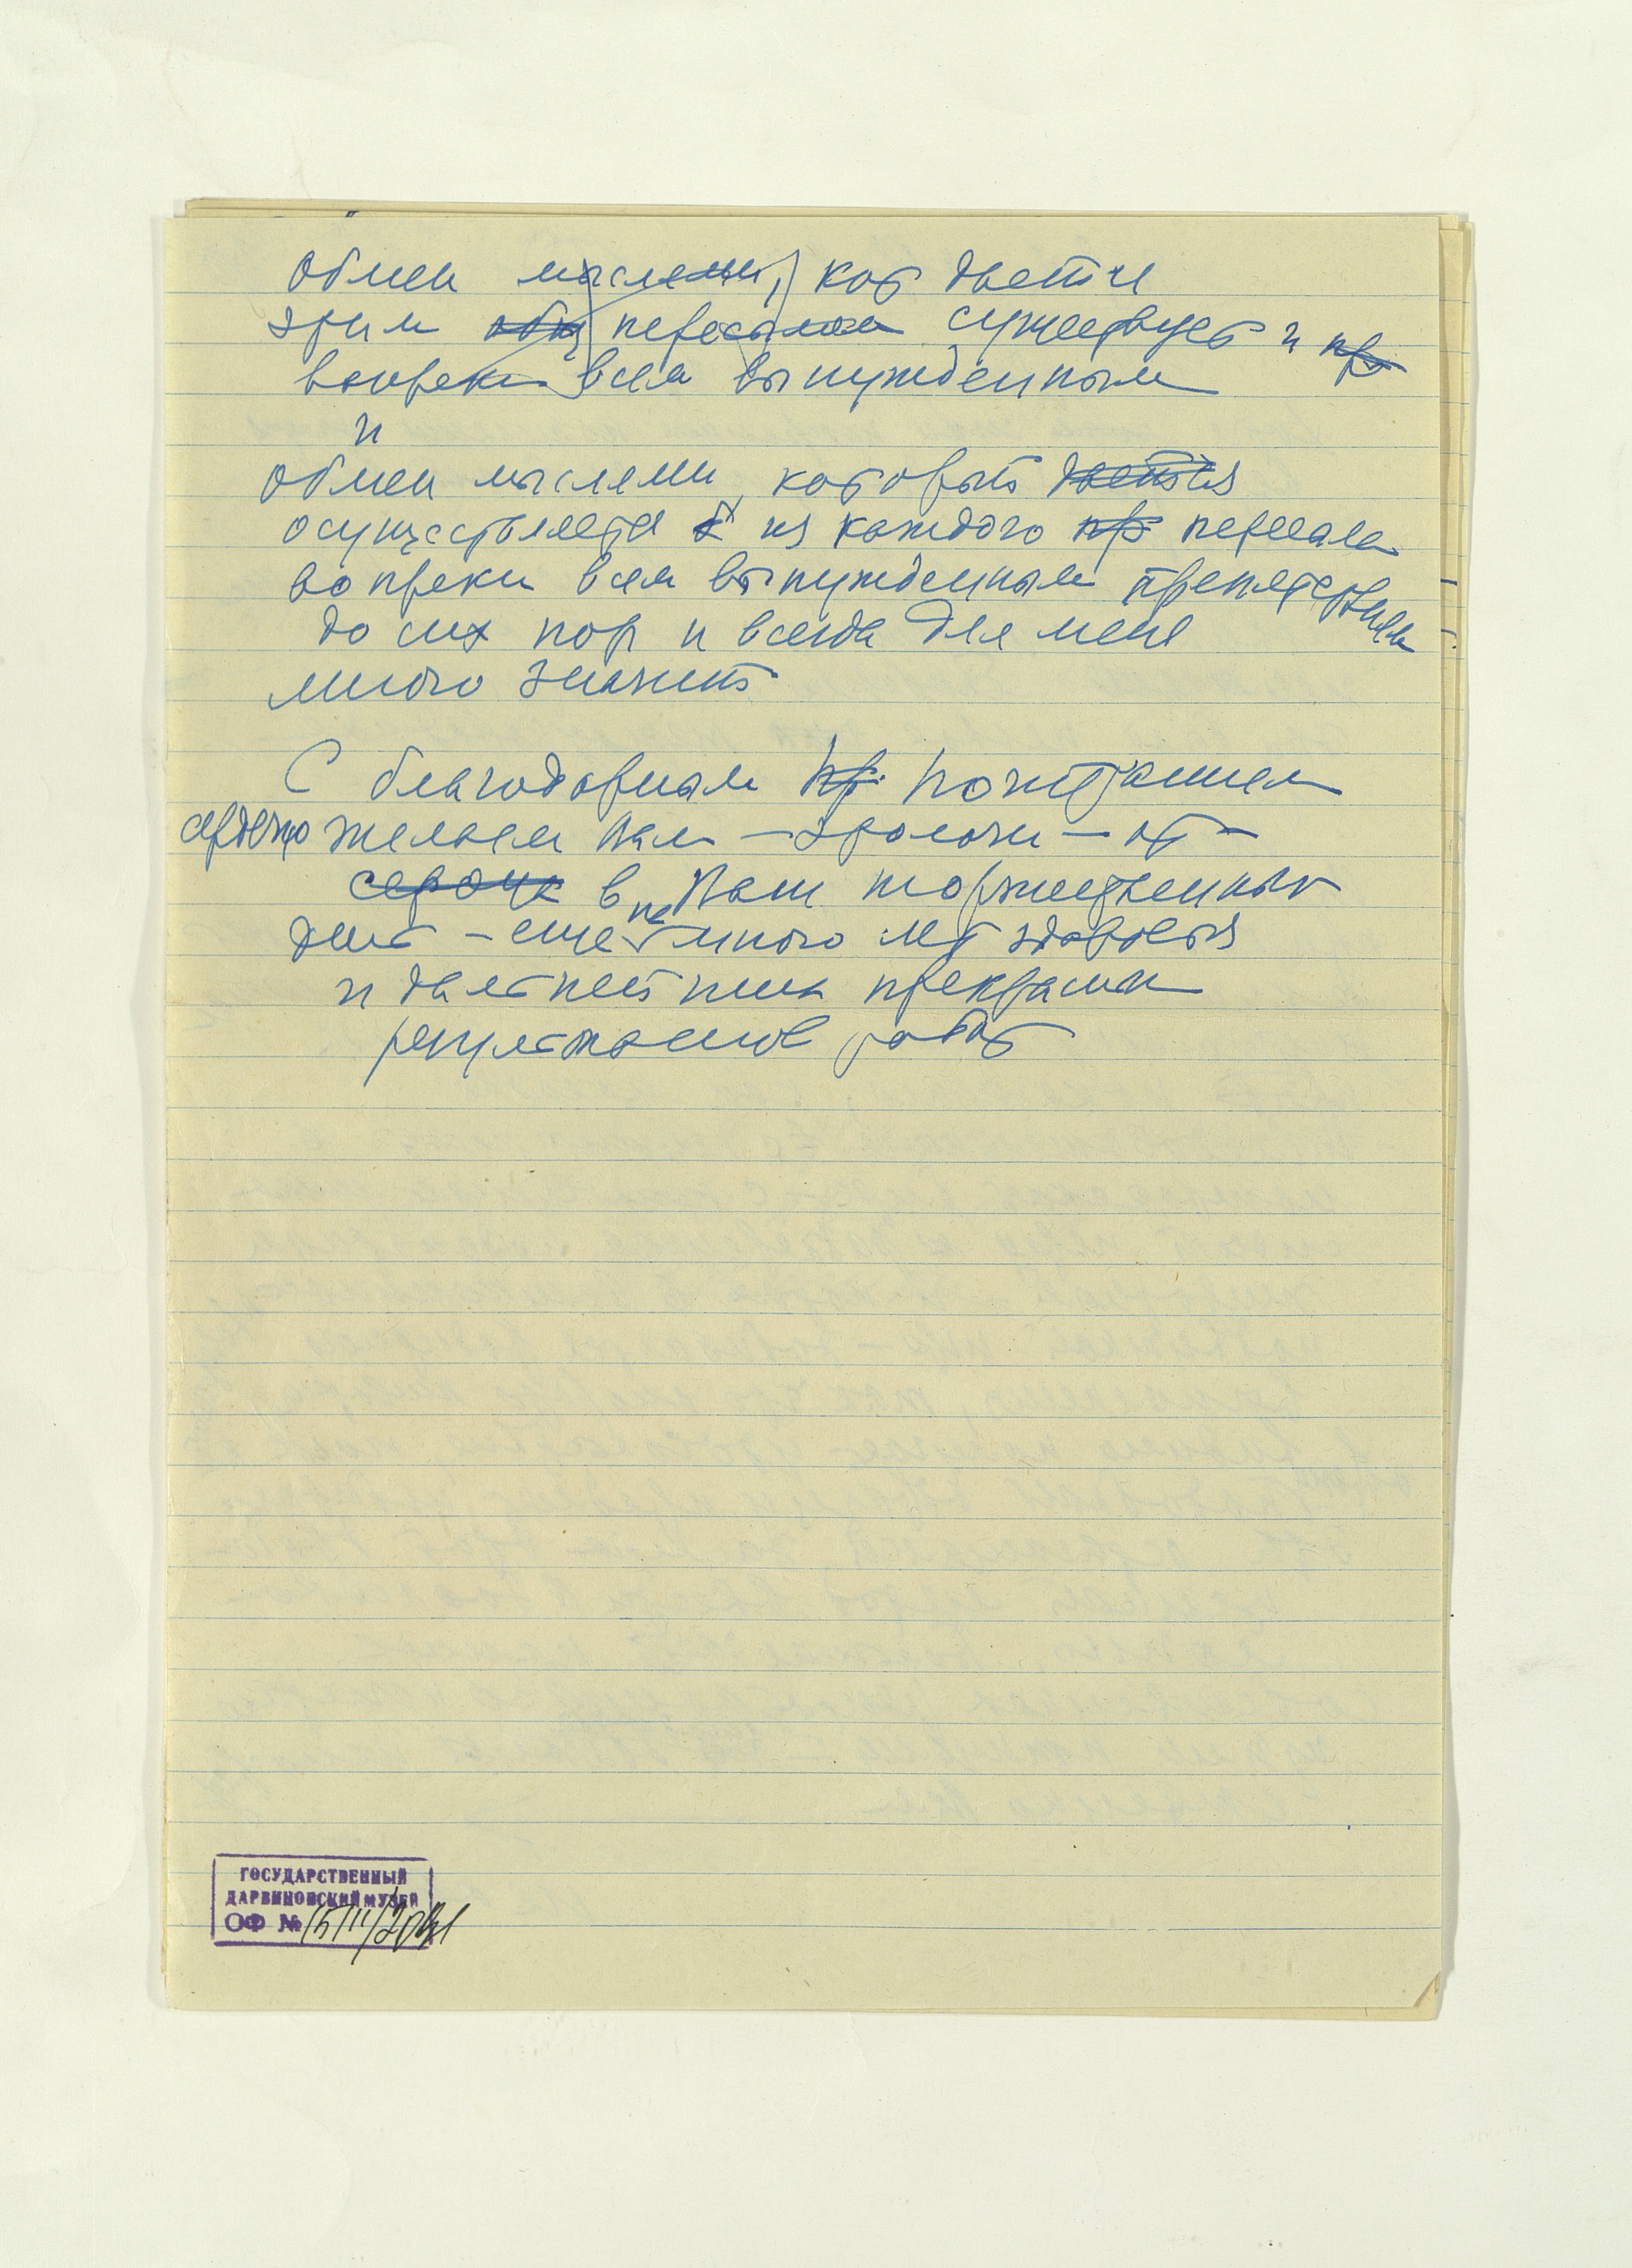 Обмен мыслями, кот дается
этим общ пересылом существует и пр
вопреки всем вынужденным
и
обмен мыслями, который дается
осуществляется из каждого пр
вопреки всем вынужденным препятствиям
до сих пор и всегда для меня
много значит
С благодарным пр. почитанием
сердечно желаем Вам
сердечн в Ваш торжественный
день – еще много лет здоровья
и дальнейших прекрасных
результатов работ
ГОСУДАРСТВЕННЫЙ
ДАРВИНОВСКИЙ МУЗЕЙ
ОФ №